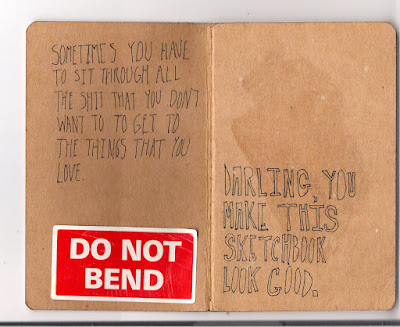 SOMETIMES YOU HAVE
TO SIT THROUGH ALL
THE SHIT THAT YOU DON'T
WANT TO TO GET TO
THE THINGS THAT YOU
LOVE.
DO NOT
BEND
DARLING, YOU
MAKE THIS
SKETCHBOOK
LOOK GOOD.